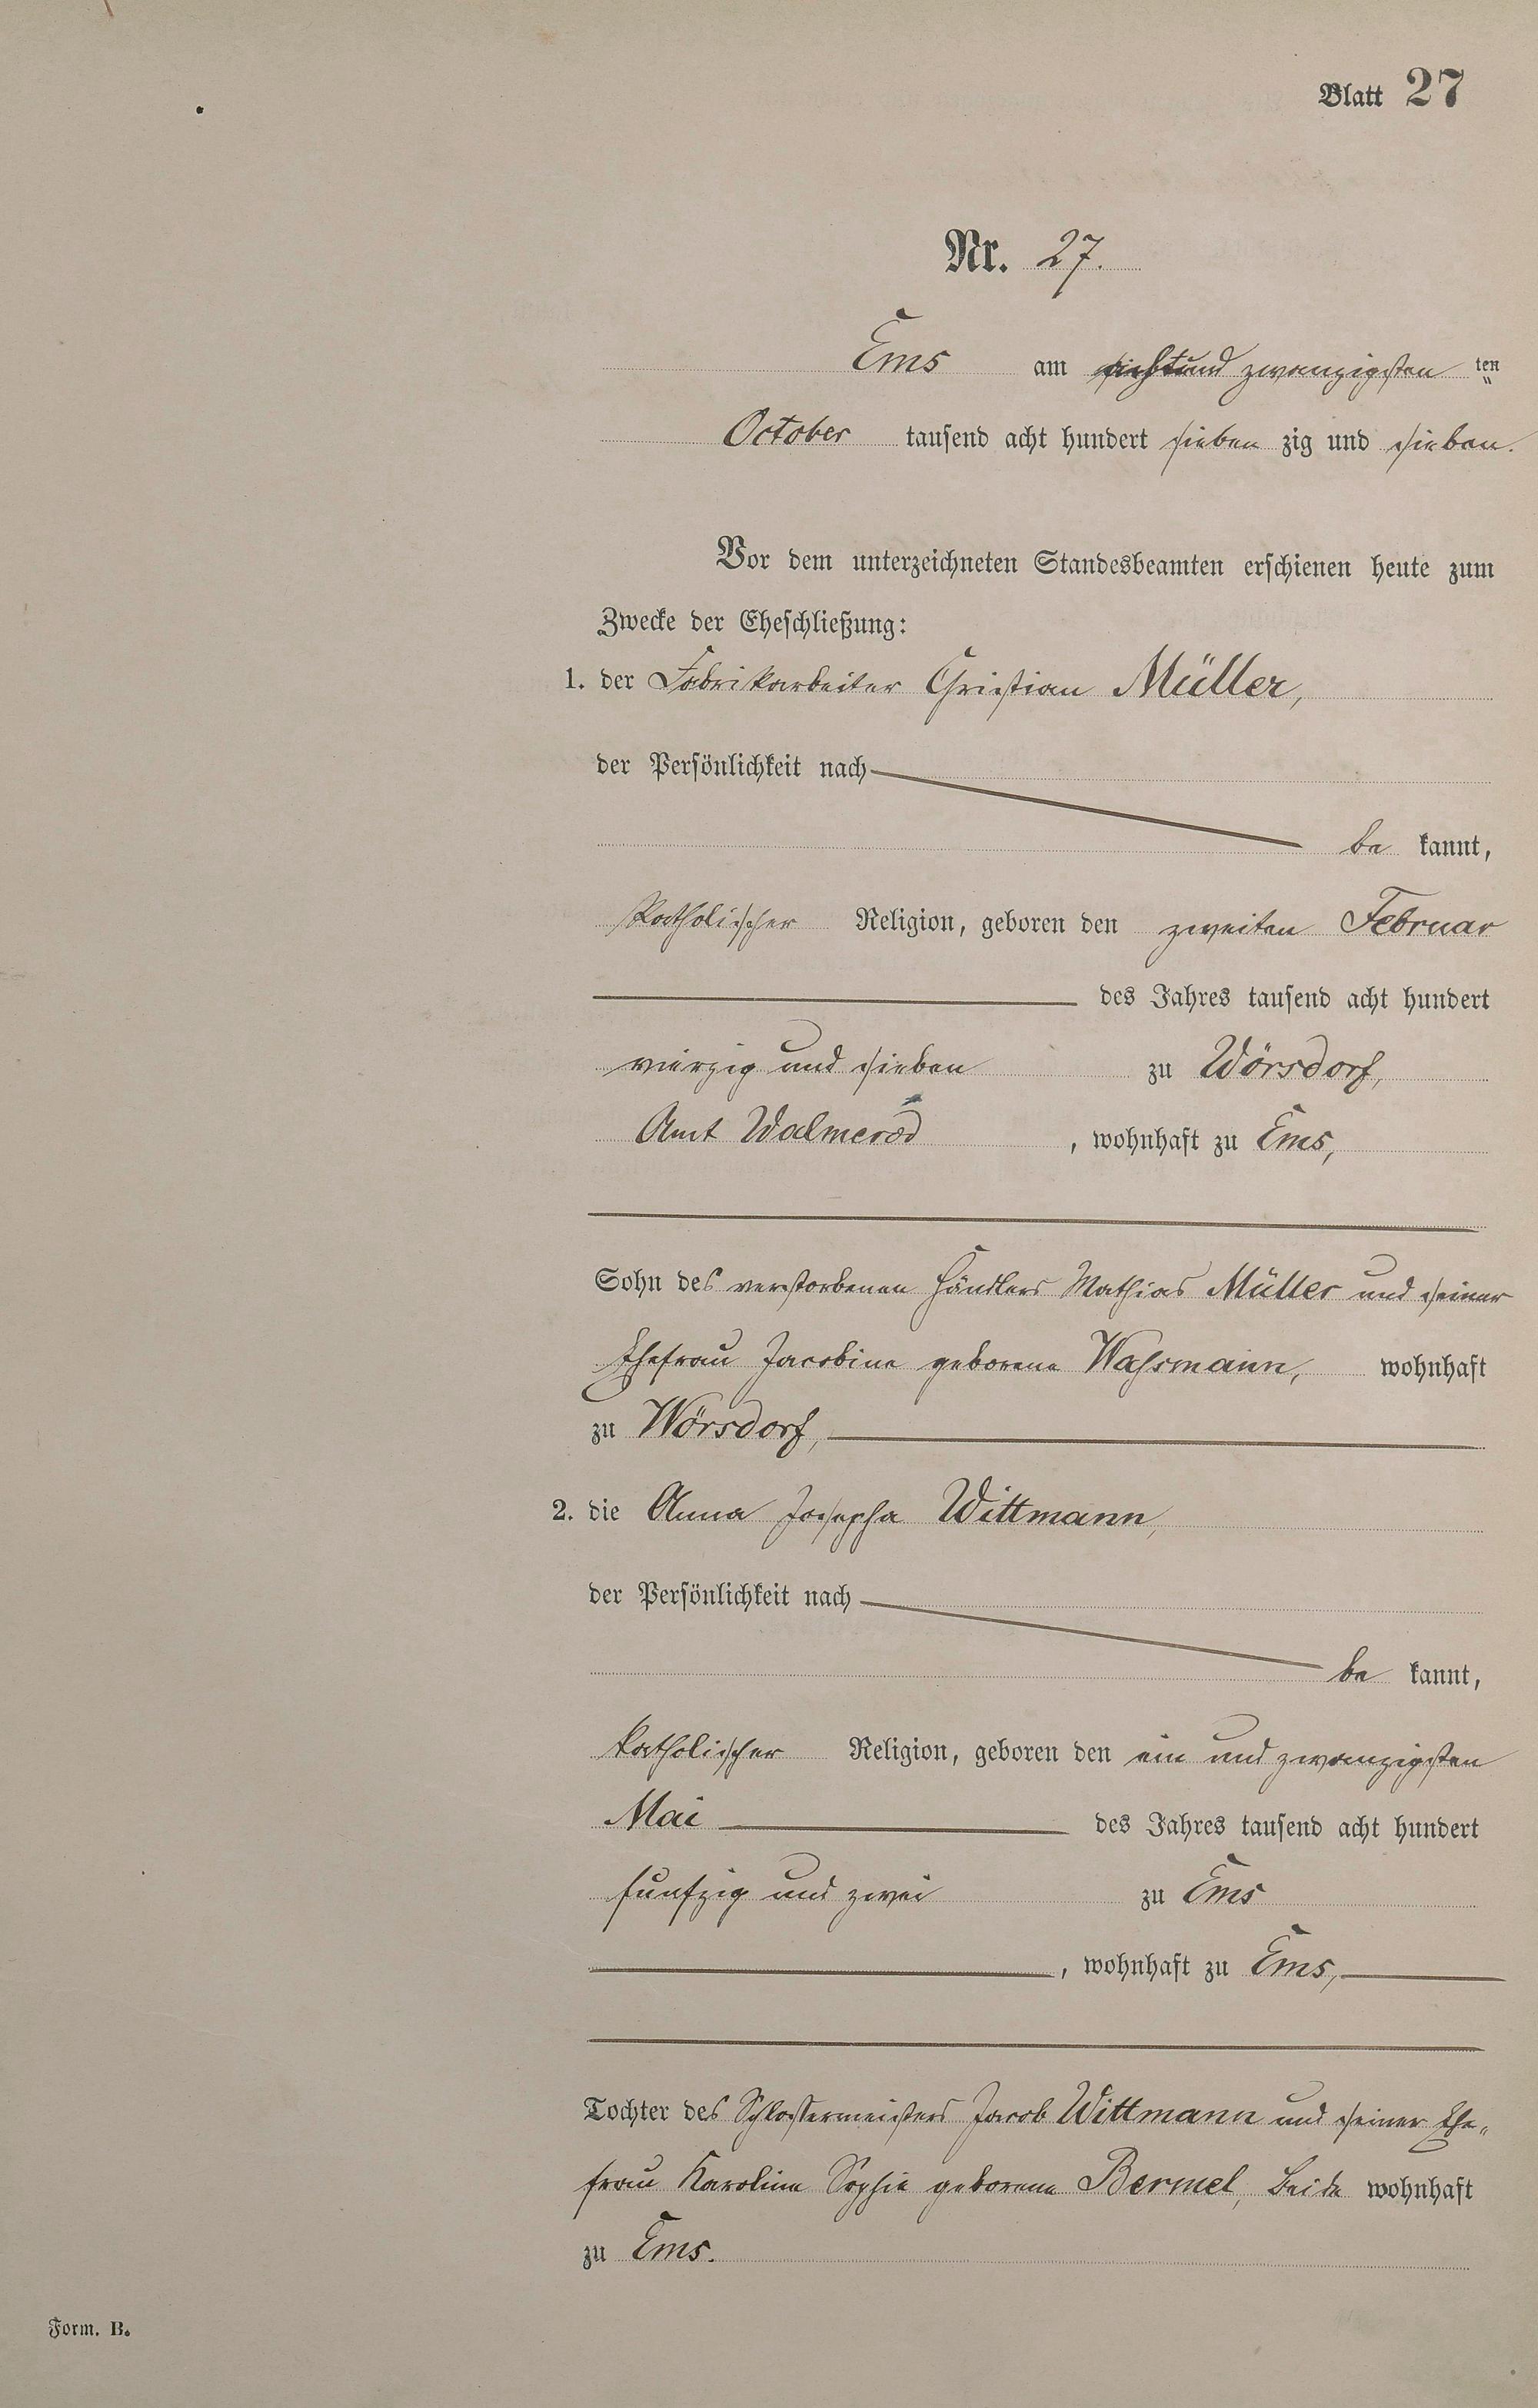 Blatt 27
Nr. 27.
Ems am zwanzigsten ten
October tausend acht hundert sieben zig und sieben.
Vor dem unterzeichneten Standesbeamten erschienen heute zum
Zwecke der Eheschließung:
1. der Fabrikarbeiter Christian Müller,
der Persönlichkeit nach
be kannt,
katholischer Religion, geboren den zweiten Februar
des Jahres tausend acht hundert
vierzig und sieben zu Wörsdorf,
Amt Walmerod, wohnhaft zu Ems,
Sohn des verstorbenen Händlers Mathias Müller und seiner
Ehefrau Jacobine geborene Waßmann, wohnhaft
zu Wörsdorf,
2. die Anna Josepha Wittmann,
der Persönlichkeit nach
be kannt,
katholischer Religion, geboren den ein und zwanzigsten
Mai des Jahres tausend acht hundert
funfzig und zwei zu Ems
, wohnhaft zu Ems,
Tochter des Schlossermeisters Jacob Wittmann und seiner Ehe-
frau Karoline Sophie geborene Bermel, beide wohnhaft
zu Ems.
Form. B.